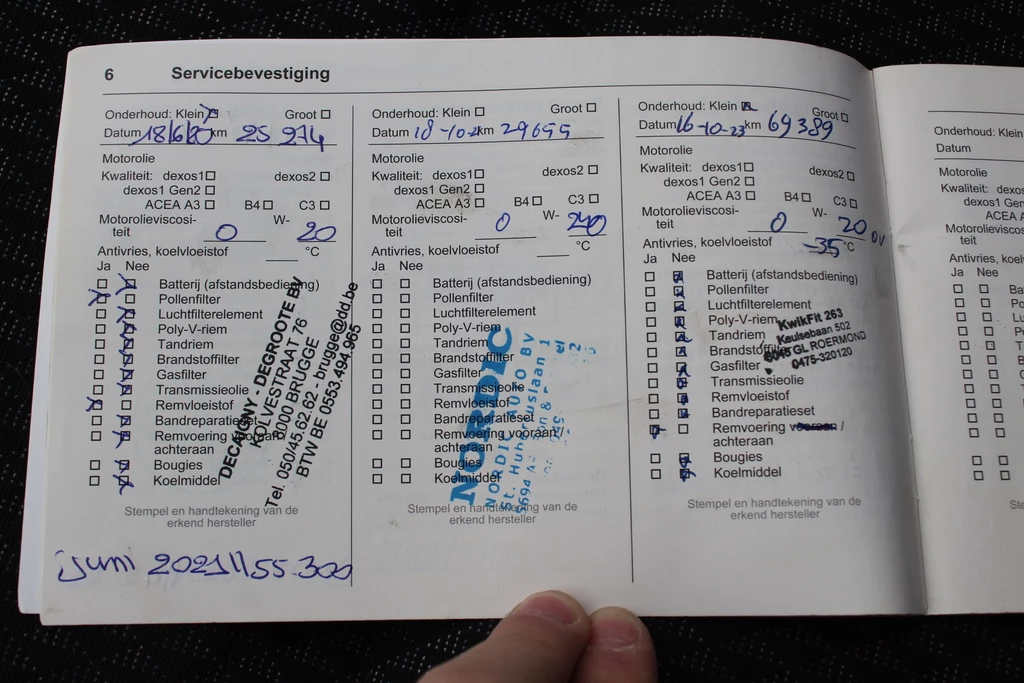 6 Servicebevestiging
Onderhoud: Klein Groot
Datum 18/6/20 km 25 274
Motorolie
Kwaliteit: dexos1 dexos2
dexos1 Gen2
ACEA A3 B4 C3
Motorolieviscosi-
teit 0 W- 20
Antivries, koelvloeistof °C
Ja Nee
Batterij (afstandsbediening)
Pollenfilter
Luchtfilterelement
Poly-V-riem
Tandriem
Brandstoffilter
Gasfilter
Transmissieolie
Remvloeistof
Bandreparatieset
Remvoering vooraan /
achteraan
Bougies
Koelmiddel
DECAIGNY - DEGROOTE BV
KOLVESTRAAT 76
8000 BRUGGE
Tel. 050/45.62.62 - brugge@dd.be
BTW BE 0553.494.965
Stempel en handtekening van de
erkend hersteller
juni 2021 \\ 55.300
Onderhoud: Klein Groot
Datum km 29655
Motorolie
Kwaliteit: dexos1 dexos2
dexos1 Gen2
ACEA A3 B4 C3
Motorolieviscosi-
teit 0 W-
Antivries, koelvloeistof °C
Ja Nee
Batterij (afstandsbediening)
Pollenfilter
Luchtfilterelement
Poly-V-riem
Tandriem
Brandstoffilter
Gasfilter
Transmissieolie
Remvloeistof
Bandreparatieset
Remvoering vooraan /
achteraan
Bougies
Koelmiddel
NORDIC
NORDIC AUTO BV
St. Hubertuslaan 1
Stempel en handtekening van de
erkend hersteller
Onderhoud: Klein Groot
Datum 16-10-23 km 69389
Motorolie
Kwaliteit: dexos1 dexos2
dexos1 Gen2
ACEA A3 B4 C3
Motorolieviscosi-
teit 0 W- 20 OV
Antivries, koelvloeistof -35 °C
Ja Nee
Batterij (afstandsbediening)
Pollenfilter
Luchtfilterelement
Poly-V-riem
Tandriem
Brandstoffilter
Gasfilter
Transmissieolie
Remvloeistof
Bandreparatieset
Remvoering vooraan /
achteraan
Bougies
Koelmiddel
KwikFit 263
Keulsebaan 502
6045 GL ROERMOND
0475-320120
Stempel en handtekening van de
erkend hersteller
Onderhoud: Klein
Datum
Motorolie
Kwaliteit: dexos1
dexos1 Gen
ACEA A
Motorolieviscos
teit
Antivries, koelv
Ja Nee
Ba
Po
Lu
Po
Ta
Br
Ga
Tr
Re
Ba
Re
ac
Bo
Ko
Ste